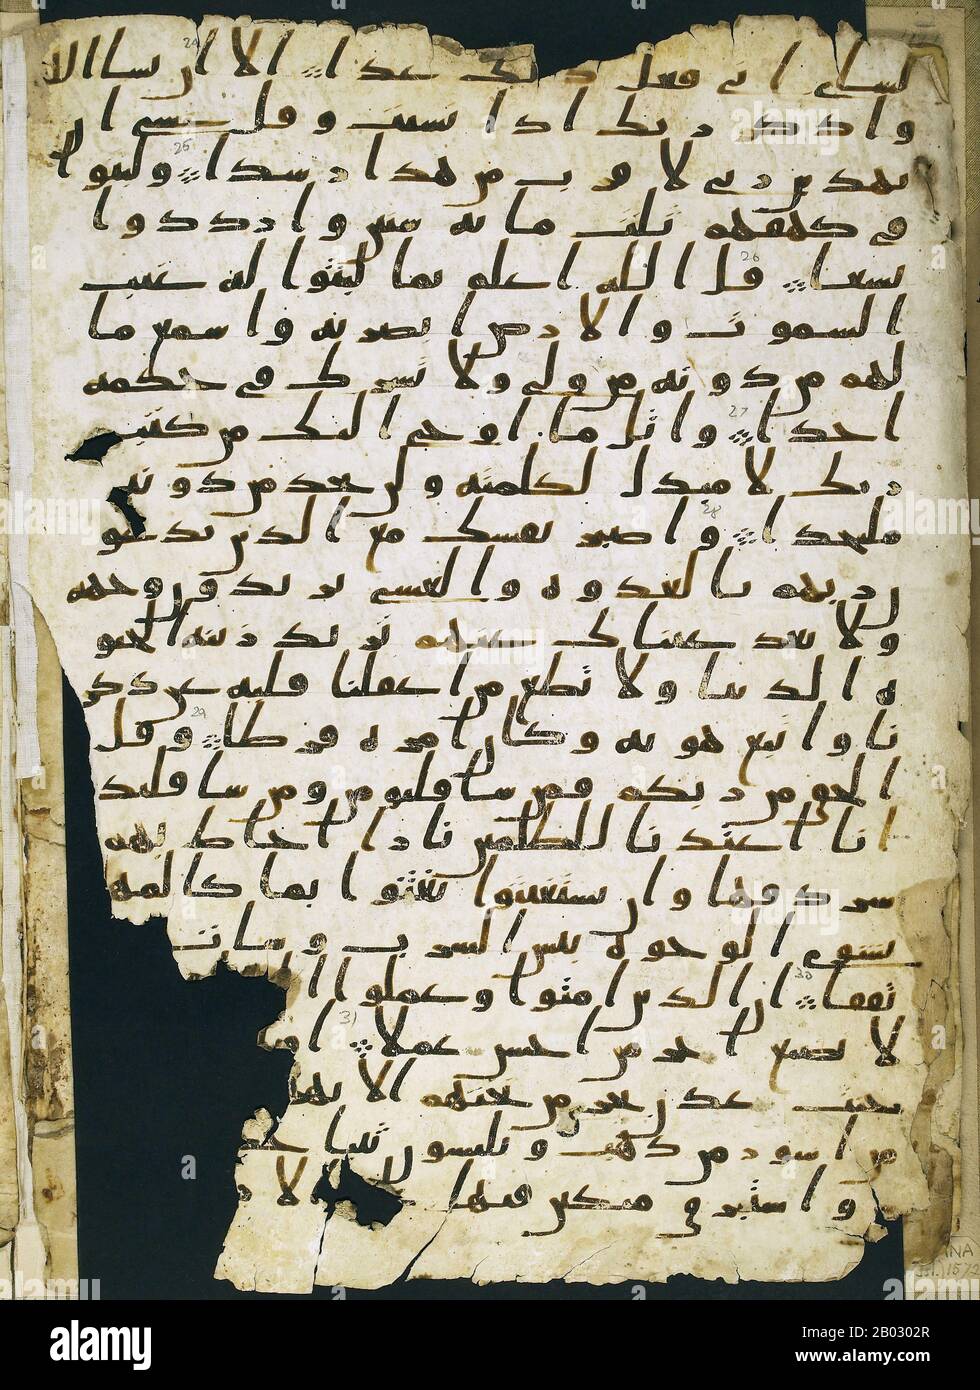 لشاي اني فعل ذلك غدا الا ان يشا الله
واذكر ربك اذا نسيت وقل عسى ان
يهدين ربي لاقرب من هذا رشدا ولبثوا
في كهفهم ثلث مايه سنين وازددوا
تسعا قل الله اعلم بما لبثوا له غيب
السموت والارض ابصر به واسمع ما
لهم من دونه من ولي ولا يشرك في حكمه
احدا واتل ما اوحي اليك من كتب
ربك لا مبدل لكلمته ولن تجد من دونه
ملتحدا واصبر نفسك مع الذين يدعو
ن ربهم بالغدوه والعشي يريدون وجهه
ولا تعد عيناك عنهم تريد زينه الحيو
ه الدنيا ولا تطع من اغفلنا قلبه عن ذكر
نا واتبع هويه وكان امره فرطا وقل
الحق من ربكم فمن شا فليومن ومن شا فليكـ
انا اعتدنا للظلمين نارا احاط بهم
سردقها وان يستغيثوا يغثوا بما كالمهـ
يشوي الوجوه بيس الشرب وسات
تفقا ان الذين امنوا وعملوا
لا نضيع اجر من احسن عملا
جنت عدن تجري من تحتهم
من اسور من ذهب ويلبسون ثيابا
واستبرق متكين فيها
alamy
Image ID: 2B0302R
www.alamy.com